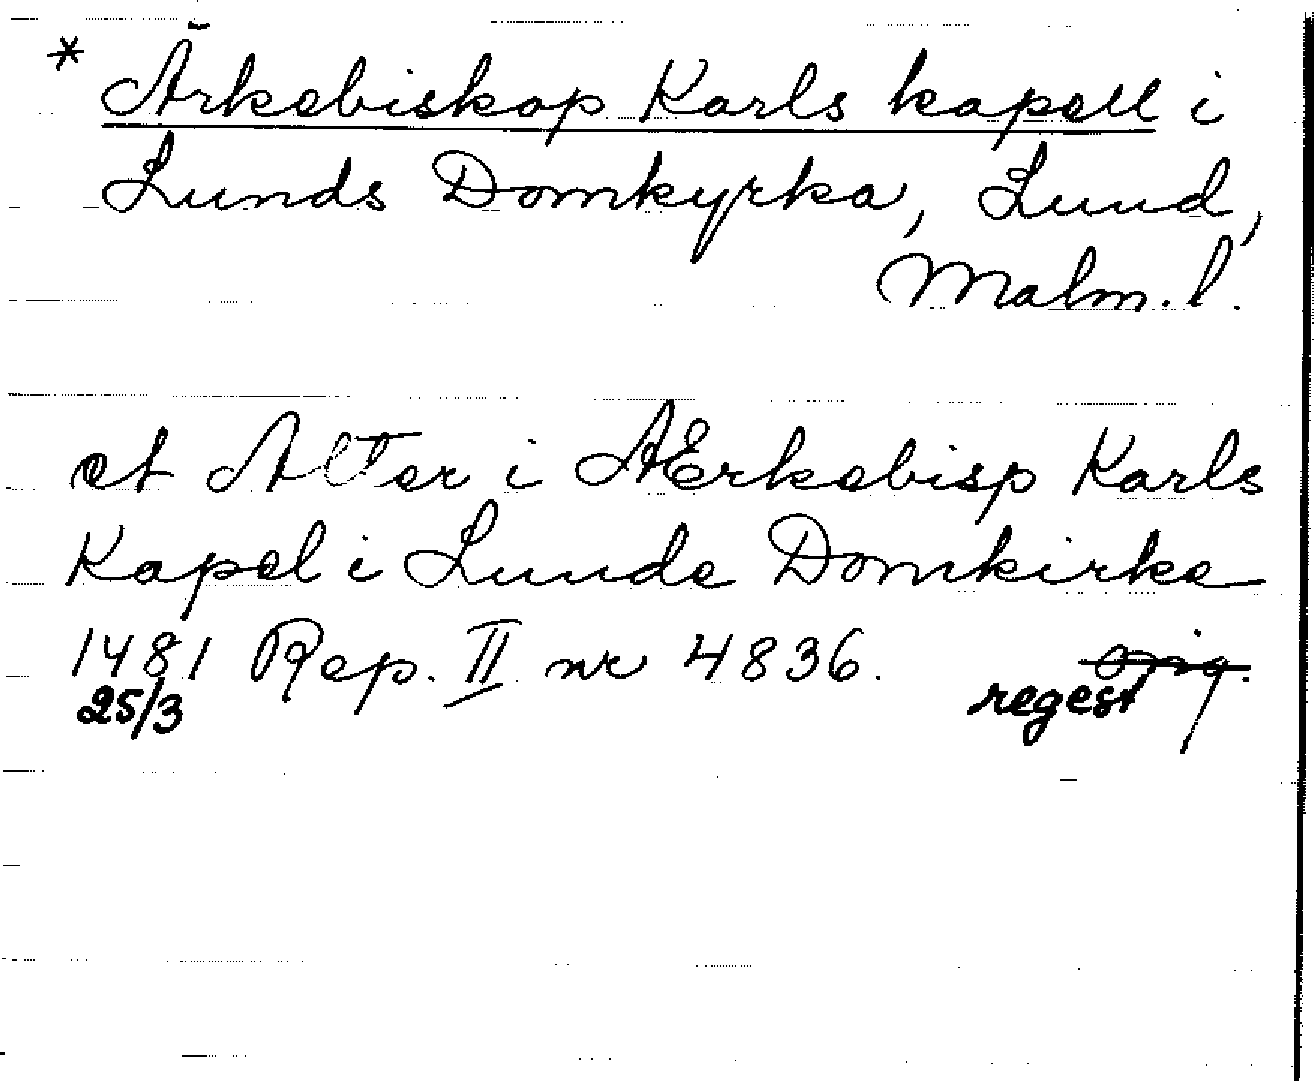 * Ärkebiskop Karls kapell i
Lunds Domkyrka, Lund,
Malm. l.
et Alter i AErkebisp Karls
Kapel i Lunde Domkirke
1481 Rep. II nr 4836. orig.
25/3 regest